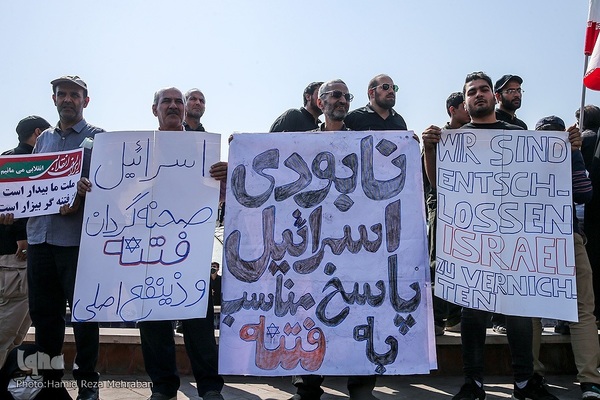 ایران انقلاب
انقلابی می مانیم
ملت ما بیدار است
از فتنه گر بیزار است
اسرائیل
صحنه گردان
فتنه
و ذینفع اصلی
نابودی
اسرائیل
پاسخ مناسب
به فتنه
WIR SIND
ENTSCH-
LOSSEN
ISRAEL
ZU VERNICH-
TEN
iqna
Photo: Hamid Reza Mehraban